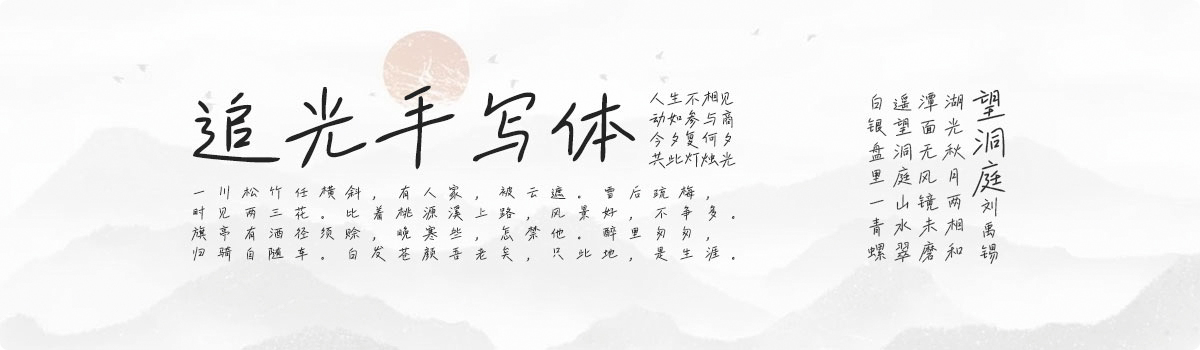 追光手写体
人生不相见
动如参与商
今夕复何夕
共此灯烛光
一川松竹任横斜，有人家，被云遮。雪后疏梅，
时见两三花。比着桃源溪上路，风景好，不争多。
旗亭有酒径须赊，晚寒些，怎禁他。醉里匆匆，
归骑自随车。白发苍颜吾老矣，只此地，是生涯。
望洞庭 刘禹锡
湖光秋月两相和
潭面无风镜未磨
遥望洞庭山水翠
白银盘里一青螺